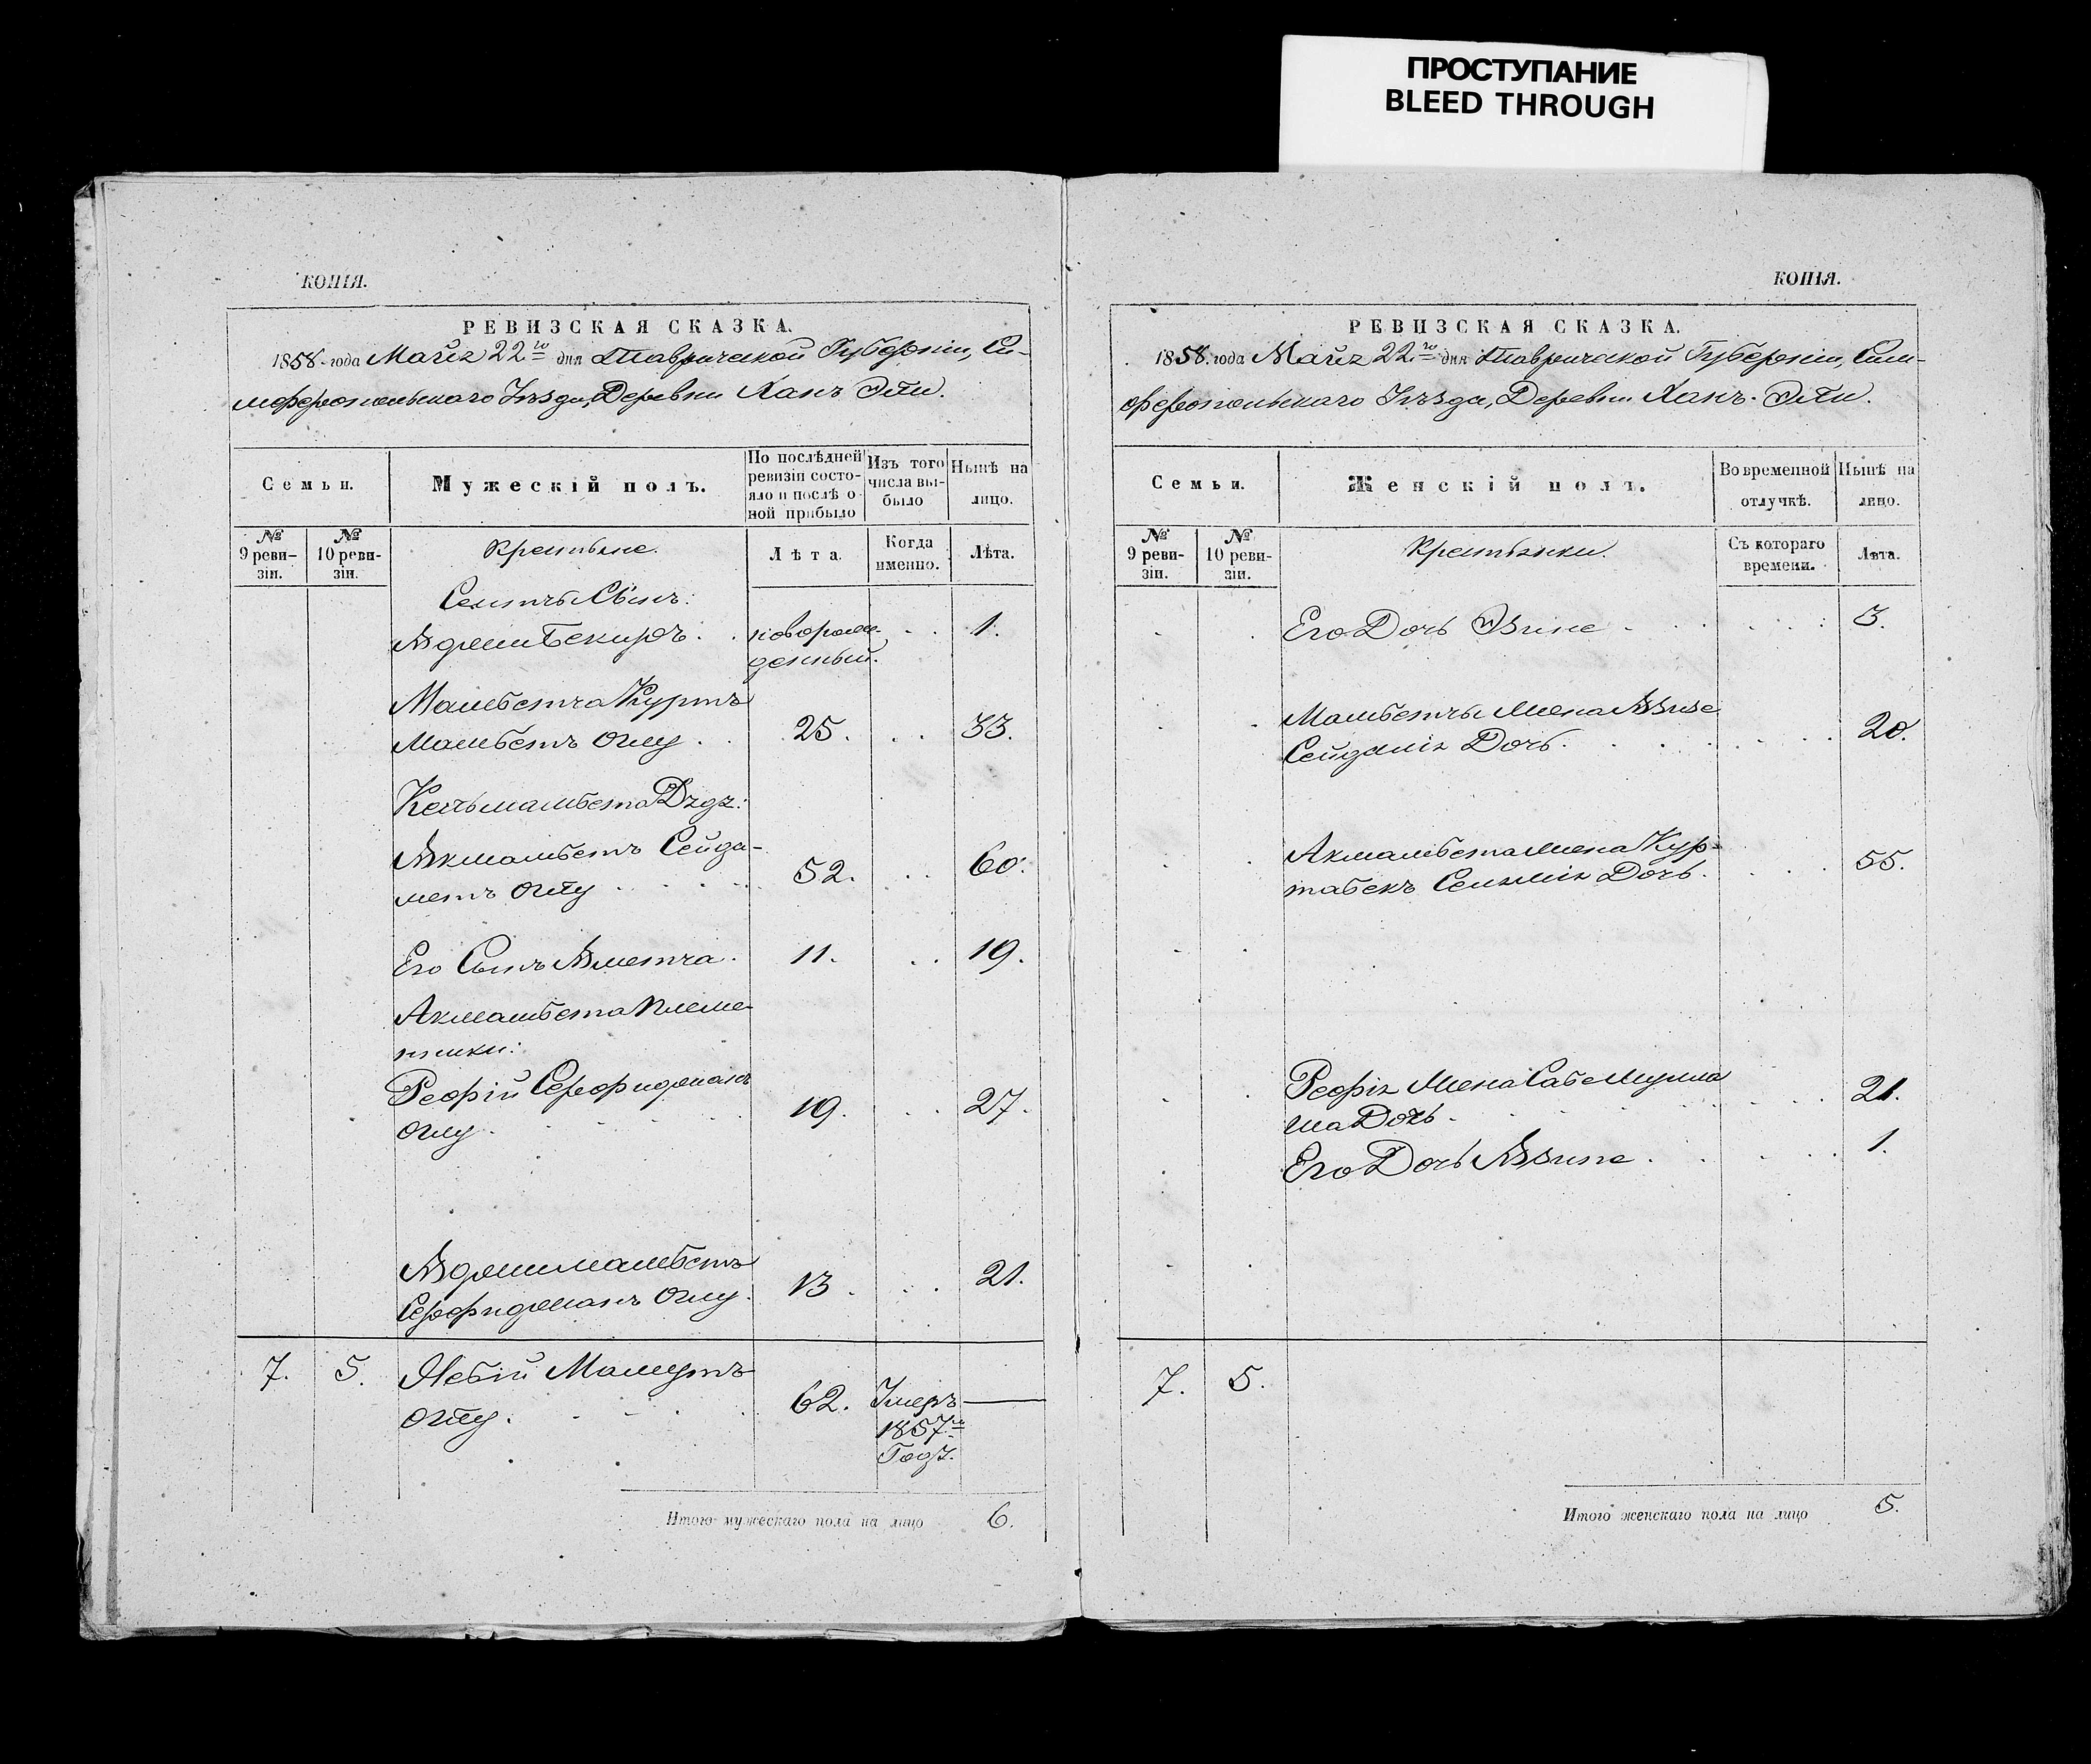 ПРОСТУПАНИЕ
BLEED THROUGH
КОПІЯ.
РЕВИЗСКАЯ СКАЗКА.
1858 года Маія 22го дня Таврической Губерніи, Си-
мферопольскаго Уѣзда, Деревни Ханъ Эли.
Семьи.
Мужескій полъ.
По послѣдней ревизіи состо-
яло и послѣ о-
ной прибыло
Изъ того числа вы-
было
Нынѣ на лицо.
№ 9 реви-
зіи.
№ 10 реви-
зіи.
Крестьяне.
Лѣта.
Когда именно.
Лѣта.
Сынъ:
Бекиръ. новорож-
денный. 1.
Мамбетча Куртъ
Мамбетъ Оглу 25. 33.
Дядя:
Акмамбетъ Сейда-
метъ Оглу 52. 60.
Его Сынъ Аметча. 11. 19.
Акмамбета Племе-
нники:
Рефій
Оглу. 19. 27.
Аджимамбетъ
Оглу. 13. 21.
7. 5. Небій Мамутъ
Оглу. 62. Умеръ
1857го
Года.
Итого мужескаго пола на лицо 6.
КОПІЯ.
РЕВИЗСКАЯ СКАЗКА.
1858 года Маія 22го дня Таврической Губерніи, Сим-
феропольскаго Уѣзда, Деревни Ханъ-Эли.
Семьи.
Женскій полъ.
Во временной отлучкѣ.
Нынѣ на лицо.
№ 9 реви-
зіи.
№ 10 реви-
зіи.
Крестьянки.
Съ котораго времени.
Лѣта.
Его Дочь 3.
Мамбетчы Жена Азизе
Дочь. 20.
Акмамбета Жена Кур-
Дочь. 55.
Рефія Жена
Дочь. 21.
Его Дочь 1.
7. 5.
Итого женскаго пола на лицо 5.